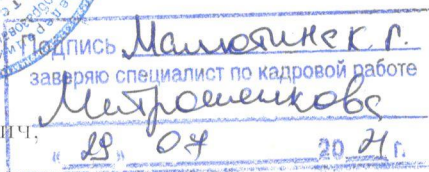 Подпись Малютинек г.
заверяю специалист по кадровой работе
Митрошенкова
ич,
"29" 07 2021 г.